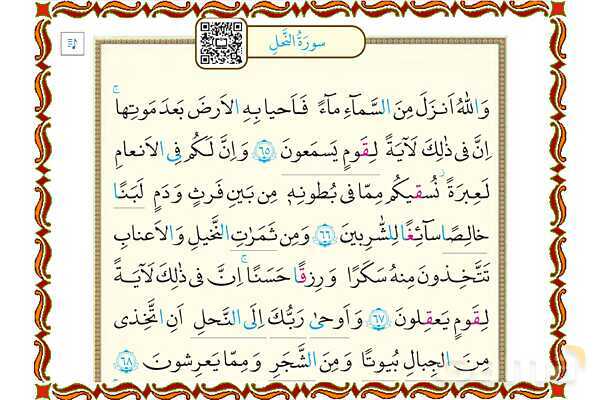 سورَةُ النَّحلِ
وَاللهُ اَنزَلَ مِنَ السَّمآءِ مآءً فَاَحيا بِهِ الاَرضَ بَعدَ مَوتِها ۚ
اِنَّ فی ذٰلِكَ لَآيَةً لِقَومٍ يَسمَعونَ ﴿٦٥﴾ وَ اِنَّ لَكُم فِی الاَنعامِ
لَعِبرَةً نُسقيكُم مِمّا فی بُطونِهٖ مِن بَينِ فَرثٍ وَ دَمٍ لَبَنًا
خالِصًا سآئِغًا لِلشّٰرِبينَ ﴿٦٦﴾ وَ مِن ثَمَرٰتِ النَّخيلِ وَ الاَعنابِ
تَتَّخِذونَ مِنهُ سَكَرًا وَ رِزقًا حَسَنًا ۚ اِنَّ فی ذٰلِكَ لَآيَةً
لِقَومٍ يَعقِلونَ ﴿٦٧﴾ وَ اَوحیٰ رَبُّكَ اِلَی النَّحلِ اَنِ اتَّخِذی
مِنَ الجِبالِ بُيوتًا وَ مِنَ الشَّجَرِ وَ مِمّا يَعرِشونَ ﴿٦٨﴾